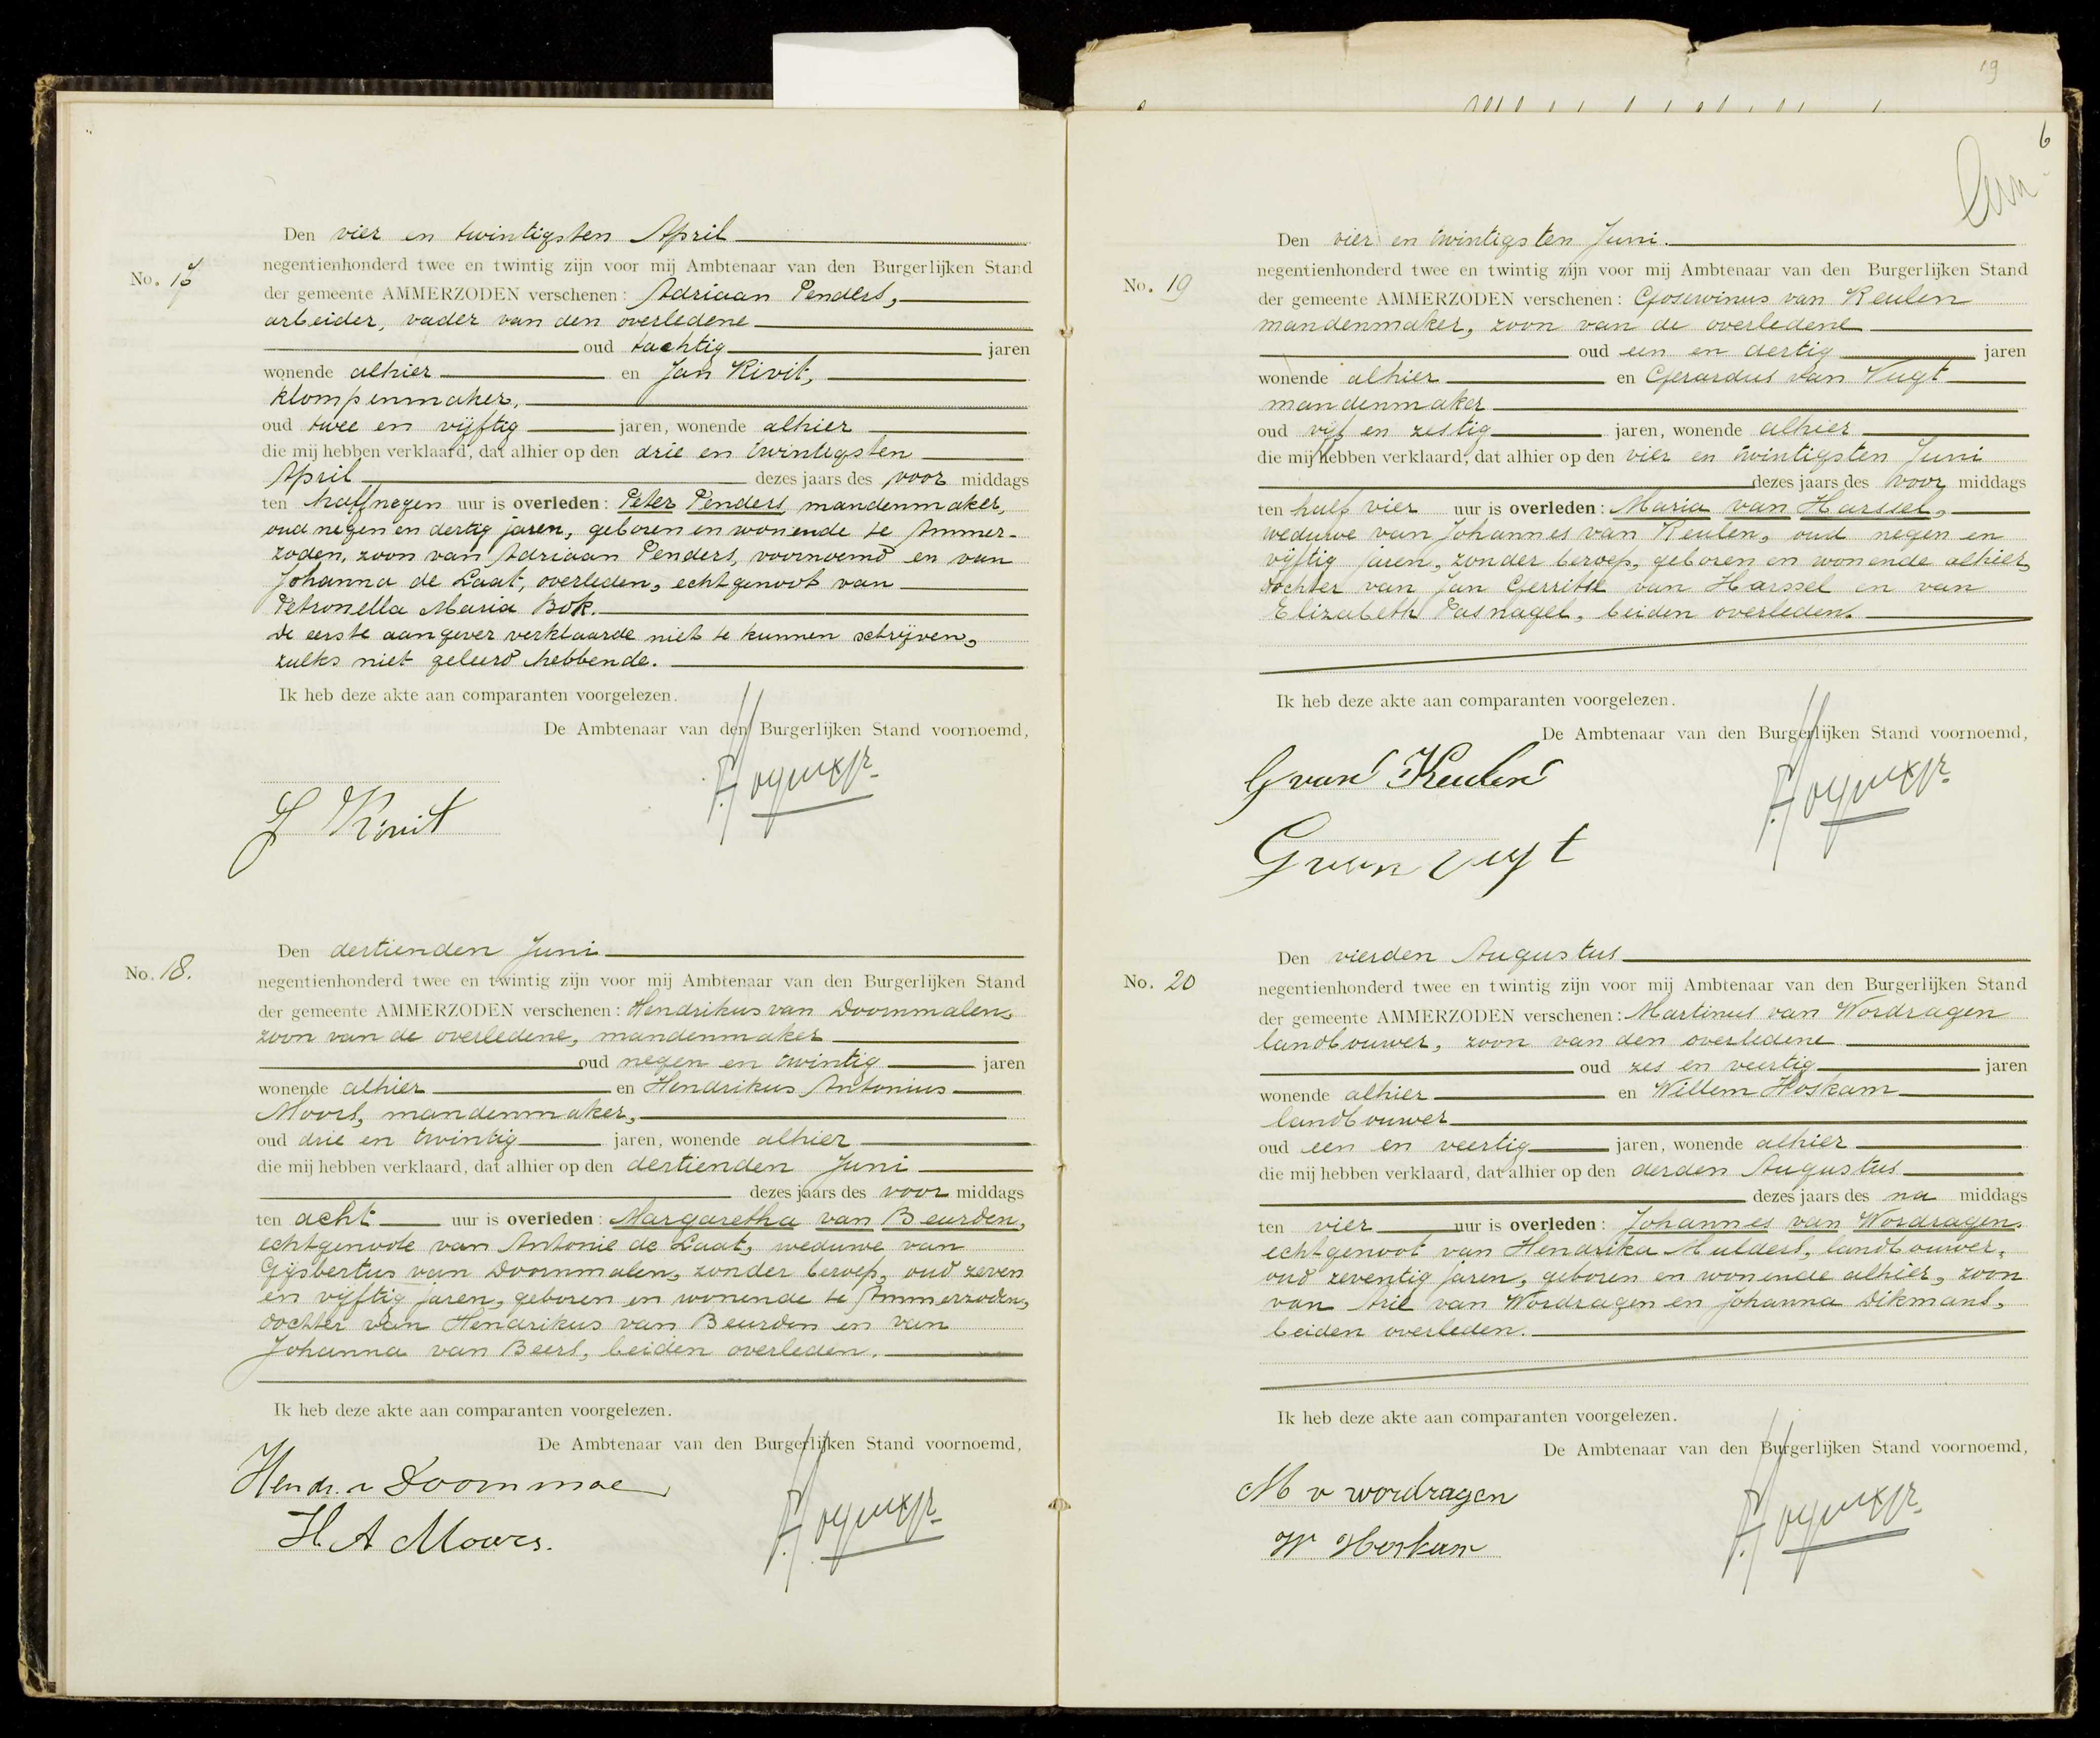 Den vier en twintigsten April
No. 17
negentienhonderd twee en twintig zijn voor mij Ambtenaar van den Burgerlijken Stand
der gemeente AMMERZODEN verschenen: Adriaan Penders,
arbeider, vader van den overledene
oud tachtig jaren
wonende alhier en Jan Kivit,
klompenmaker,
oud twee en vijftig jaren, wonende alhier
die mij hebben verklaard, dat alhier op den drie en twintigsten
April dezes jaars des voor middags
ten half negen uur is overleden: Peter Penders, mandenmaker,
oud negen en dertig jaren, geboren en wonende te Ammer-
zoden, zoon van Adriaan Penders, voornoemd en van
Johanna de Laat, overleden, echtgenoot van
Petronella Maria Bok.
De eerste aangever verklaarde niet te kunnen schrijven,
zulks niet geleerd hebbende.
Ik heb deze akte aan comparanten voorgelezen.
De Ambtenaar van den Burgerlijken Stand voornoemd,
J Kivit
Den dertienden Juni
No. 18.
negentienhonderd twee en twintig zijn voor mij Ambtenaar van den Burgerlijken Stand
der gemeente AMMERZODEN verschenen: Hendrikus van Doornmalen,
zoon van de overledene, mandenmaker
oud negen en twintig jaren
wonende alhier en Hendrikus Antonius
Moors, mandenmaker,
oud drie en twintig jaren, wonende alhier
die mij hebben verklaard, dat alhier op den dertienden Juni
dezes jaars des voor middags
ten acht uur is overleden: Margaretha van Beurden,
echtgenoote van Antonie de Laat, weduwe van
Gijsbertus van Doornmalen, zonder beroep, oud zeven
en vijftig jaren, geboren en wonende te Ammerzoden,
dochter van Hendrikus van Beurden en van
Johanna van Beers, beiden overleden.
Ik heb deze akte aan comparanten voorgelezen.
De Ambtenaar van den Burgerlijken Stand voornoemd,
Hendr. v Doornmae
H. A Moors.
19
6
Den vier en twintigsten Juni.
No. 19
negentienhonderd twee en twintig zijn voor mij Ambtenaar van den Burgerlijken Stand
der gemeente AMMERZODEN verschenen: Goserwinus van Keulen
mandenmaker, zoon van de overledene
oud een en dertig jaren
wonende alhier en Gerardus van Vugt
mandenmaker
oud vijf en zestig jaren, wonende alhier
die mij hebben verklaard, dat alhier op den vier en twintigsten Juni
dezes jaars des voor middags
ten half vier uur is overleden: Maria van Harssel,
weduwe van Johannes van Keulen, oud negen en
vijftig jaren, zonder beroep, geboren en wonende alhier,
dochter van Jan Gerritse van Harssel en van
Elizabeth Pasnagel, beiden overleden.
Ik heb deze akte aan comparanten voorgelezen.
De Ambtenaar van den Burgerlijken Stand voornoemd,
G van Keulen
G van vugt
Den vierden Augustus
No. 20
negentienhonderd twee en twintig zijn voor mij Ambtenaar van den Burgerlijken Stand
der gemeente AMMERZODEN verschenen: Martinus van Wordragen
landbouwer, zoon van den overledene
oud zes en veertig jaren
wonende alhier en Willem Hoskam
landbouwer
oud een en veertig jaren, wonende alhier
die mij hebben verklaard, dat alhier op den derden Augustus
dezes jaars des na middags
ten vier uur is overleden: Johannes van Wordragen,
echtgenoot van Hendrika Mulders, landbouwer,
oud zeventig jaren, geboren en wonende alhier, zoon
van Arie van Wordragen en Johanna Dikmans,
beiden overleden.
Ik heb deze akte aan comparanten voorgelezen.
De Ambtenaar van den Burgerlijken Stand voornoemd,
M v wordragen
W Hoskam